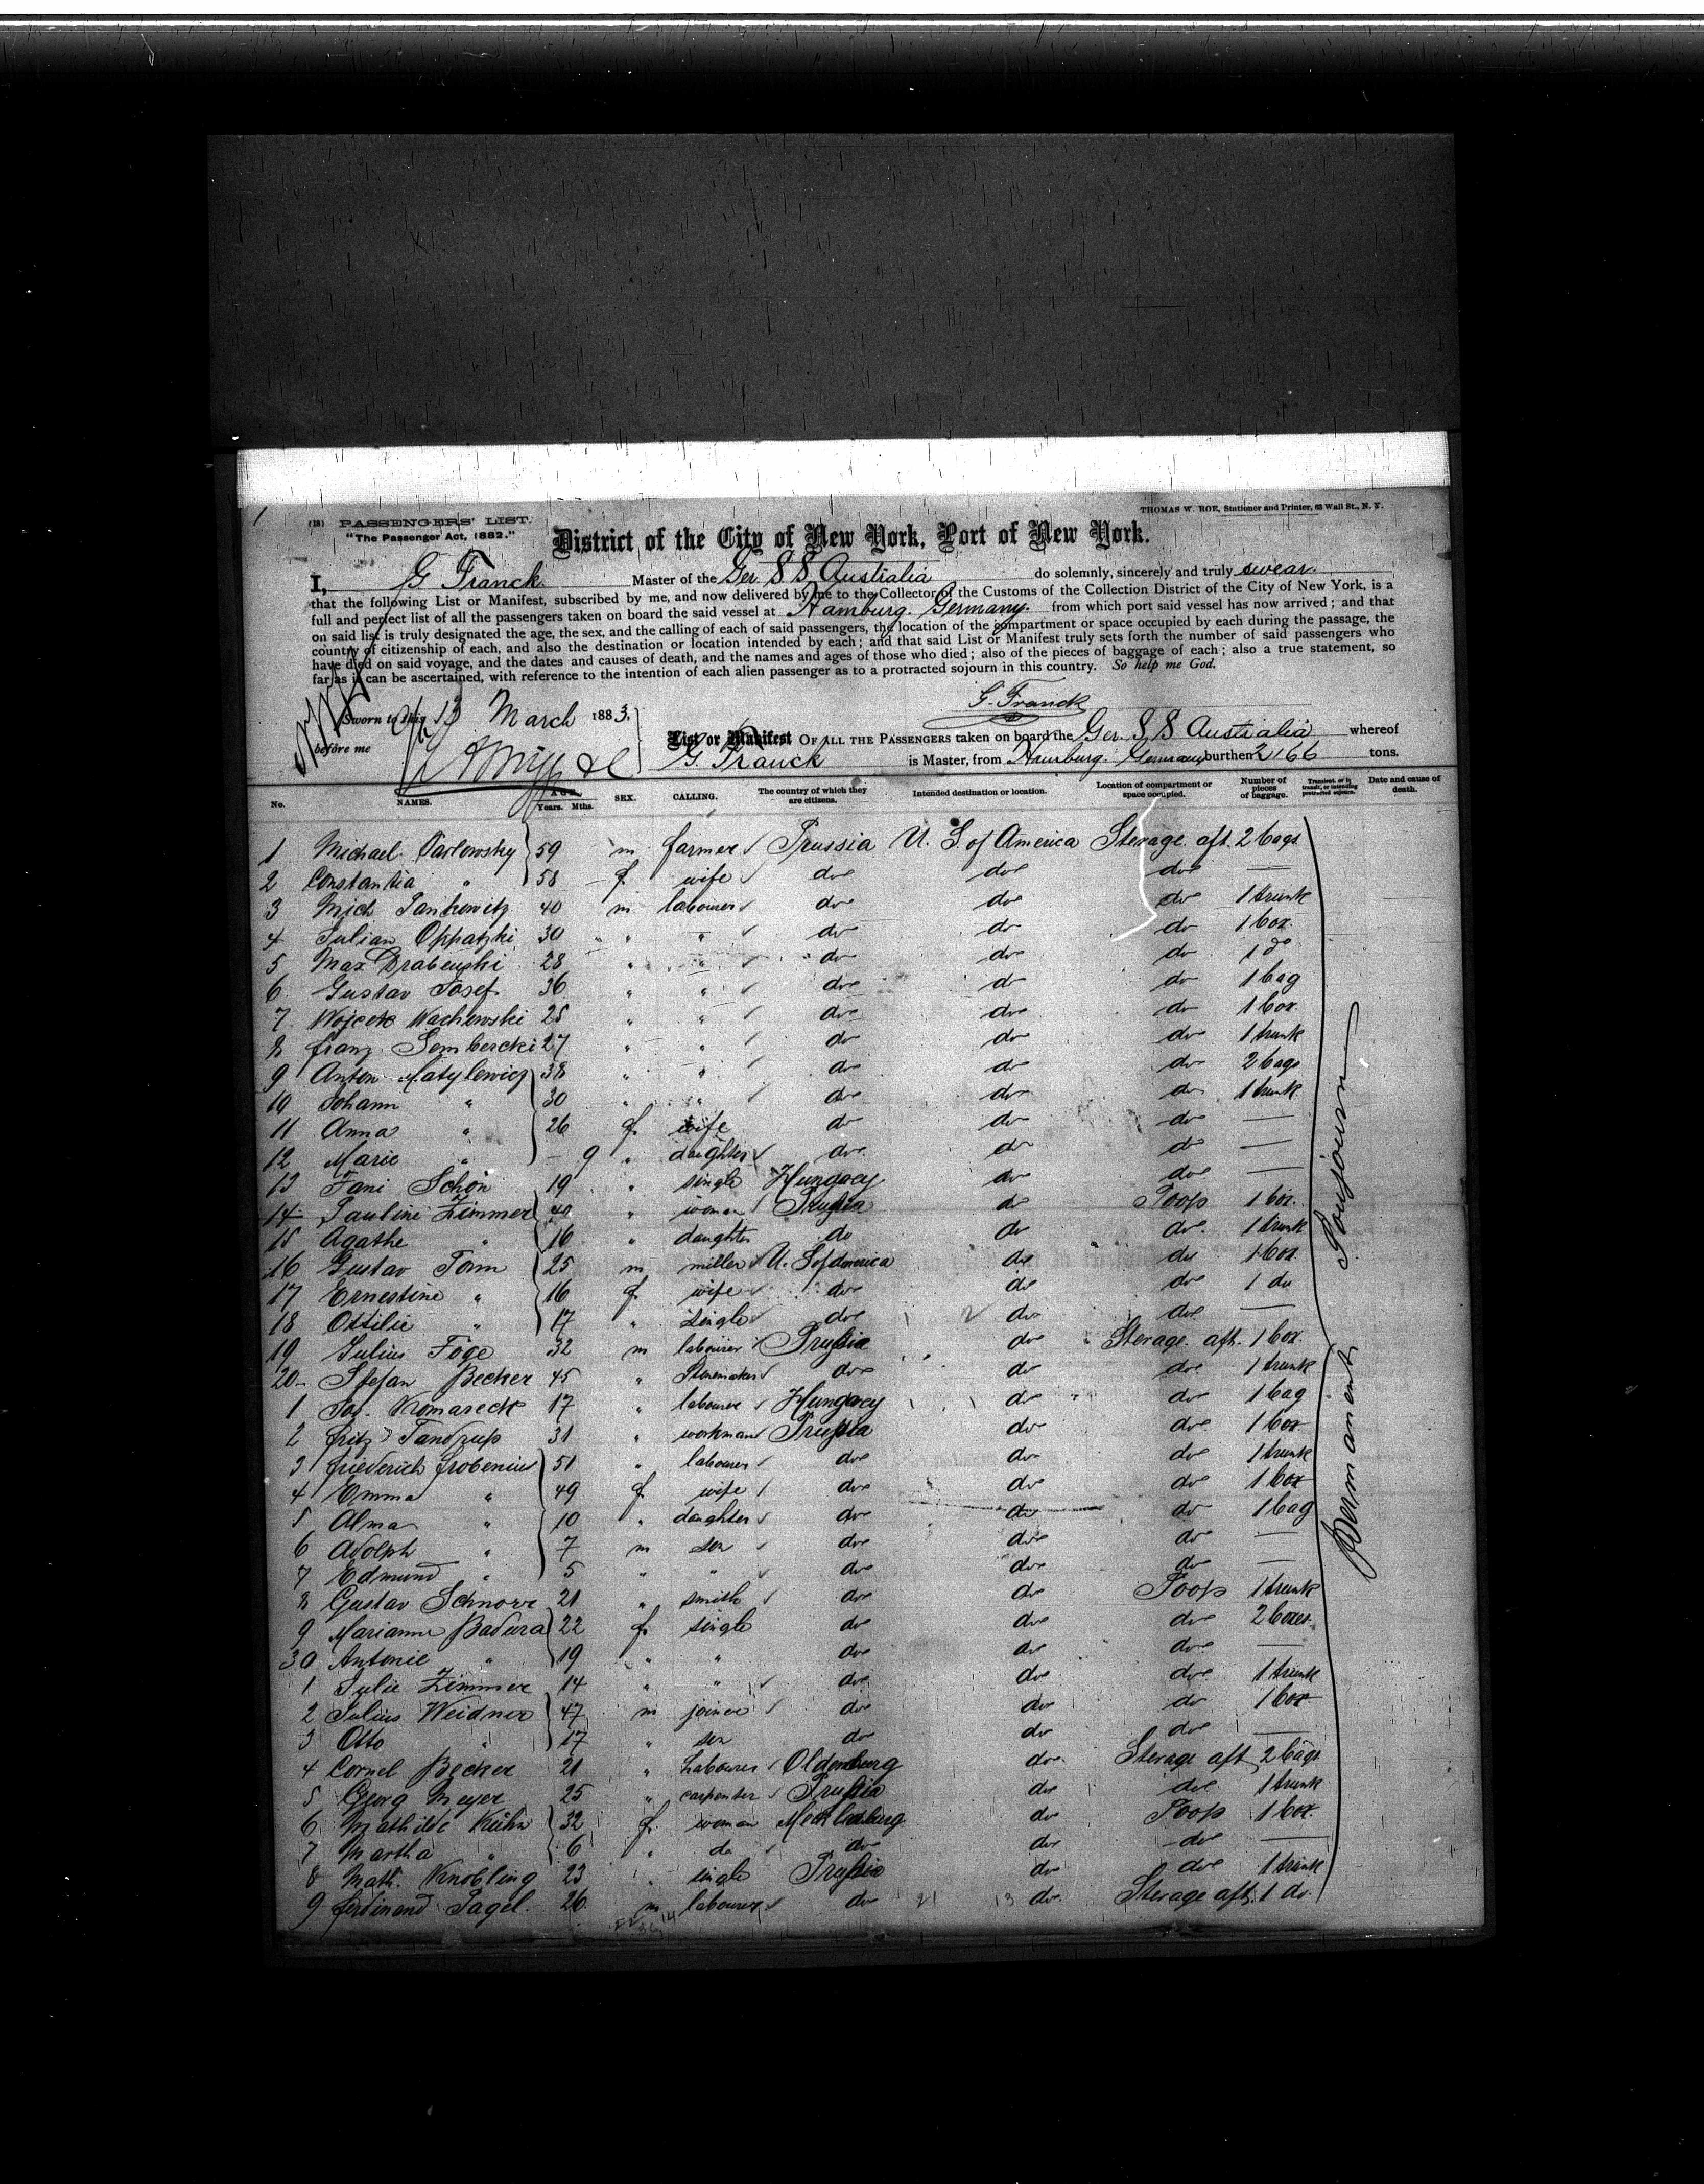 (13) PASSENGERS' LIST.
"The Passenger Act, 1882."
THOMAS W. ROE, Stationer and Printer, 63 Wall St., N. Y.
District of the City of New York, Port of New York.
I, G Franck Master of the Ger. S S Australia do solemnly, sincerely and truly swear
that the following List or Manifest, subscribed by me, and now delivered by me to the Collector of the Customs of the Collection District of the City of New York, is a
full and perfect list of all the passengers taken on board the said vessel at Hamburg. Germany. from which port said vessel has now arrived; and that
on said list is truly designated the age, the sex, and the calling of each of said passengers, the location of the compartment or space occupied by each during the passage, the
country of citizenship of each, and also the destination or location intended by each; and that said List or Manifest truly sets forth the number of said passengers who
have died on said voyage, and the dates and causes of death, and the names and ages of those who died; also of the pieces of baggage of each; also a true statement, so
far as it can be ascertained, with reference to the intention of each alien passenger as to a protracted sojourn in this country. So help me God.
G. Franck
Sworn to this 13 March 1883.
before me
List or Manifest OF ALL THE PASSENGERS taken on board the Ger. S S Australia whereof
G. Franck is Master, from Hamburg. Germany burthen 2166 tons.
No. NAMES. AGE Years. Mths. SEX. CALLING. The country of which they are citizens. Intended destination or location. Location of compartment or space occupied. Number of pieces of baggage. Transient, or in transit, or intending protracted sojourn. Date and cause of death.
1 Michael Parlowsky 59 m farmer Prussia U. S. of America Sterage aft. 2 bags
2 Constantia " 58 f. wife do do do —
3 Mich Jankowitz 40 m labourer do do do 1 trunk
4 Julian Oppatzki 30 " " do do do 1 box.
5 Max Drabenski 28 " " do do do 1 do
6 Gustav Josef 36 " " do do do 1 bag
7 Wojcek Wachowski 25 " " do do do 1 box.
8 Franz Sembercki 27 " " do do do 1 trunk
9 Anton Matylewicz 38 " " do do do 2 bags
10 Johann " 30 " " do do do 1 trunk
11 Anna " 26 f. wife do do do —
12 Marie " - 9 " daughter do do do —
13 Fani Schön 19 " single Hungary do do —
14 Pauline Zimmer 40 " woman Prussia do Poop 1 box.
15 Agathe " 16 " daughter do do do 1 trunk
16 Gustav Tom 25 m miller U. S of America do do 1 box
17 Ernestine " 16 f. wife do do do 1 do
18 Ottilie " 17 " single do do do —
19 Julius Foge 32 m labourer Prussia do Sterage aft. 1 box.
20 Stefan Becker 45 " do do do 1 trunk
1 Jos. Komareck 17 " labourer Hungary do do 1 bag
2 Fritz Tandrup 31 " workman Prussia do do 1 box
3 Friederich Frobenius 51 " labourer do do do 1 trunk
4 Emma " 49 f. wife do do do 1 box
5 Alma " 10 " daughter do do do 1 bag
6 Adolph " 7 m son do do do —
7 Edmund " 5 " " do do do —
8 Gustav Schnorr 21 " smith do do Poop 1 trunk
9 Marianne Badura 22 f. single do do do 2 boxes.
30 Antonie " 19 " " do do do —
1 Julie Zimmer 14 " " do do do 1 trunk
2 Julius Weidner 47 m joiner do do do 1 box
3 Otto " 17 " son do do do —
4 Cornel Becker 21 " Labourer Oldenburg do Sterage aft 2 bags
5 Georg Meyer 25 " carpenter Prussia do do 1 trunk
6 Mathilde Kühn 32 f. woman Mecklenburg do Poop 1 box.
7 Martha " 6 " do do do do —
8 Math. Knobling 23 " single Prussia do do 1 trunk
9 Ferdinand Pagel. 26 m labourer do do Sterage aft. 1 do.
permanent Soujourn